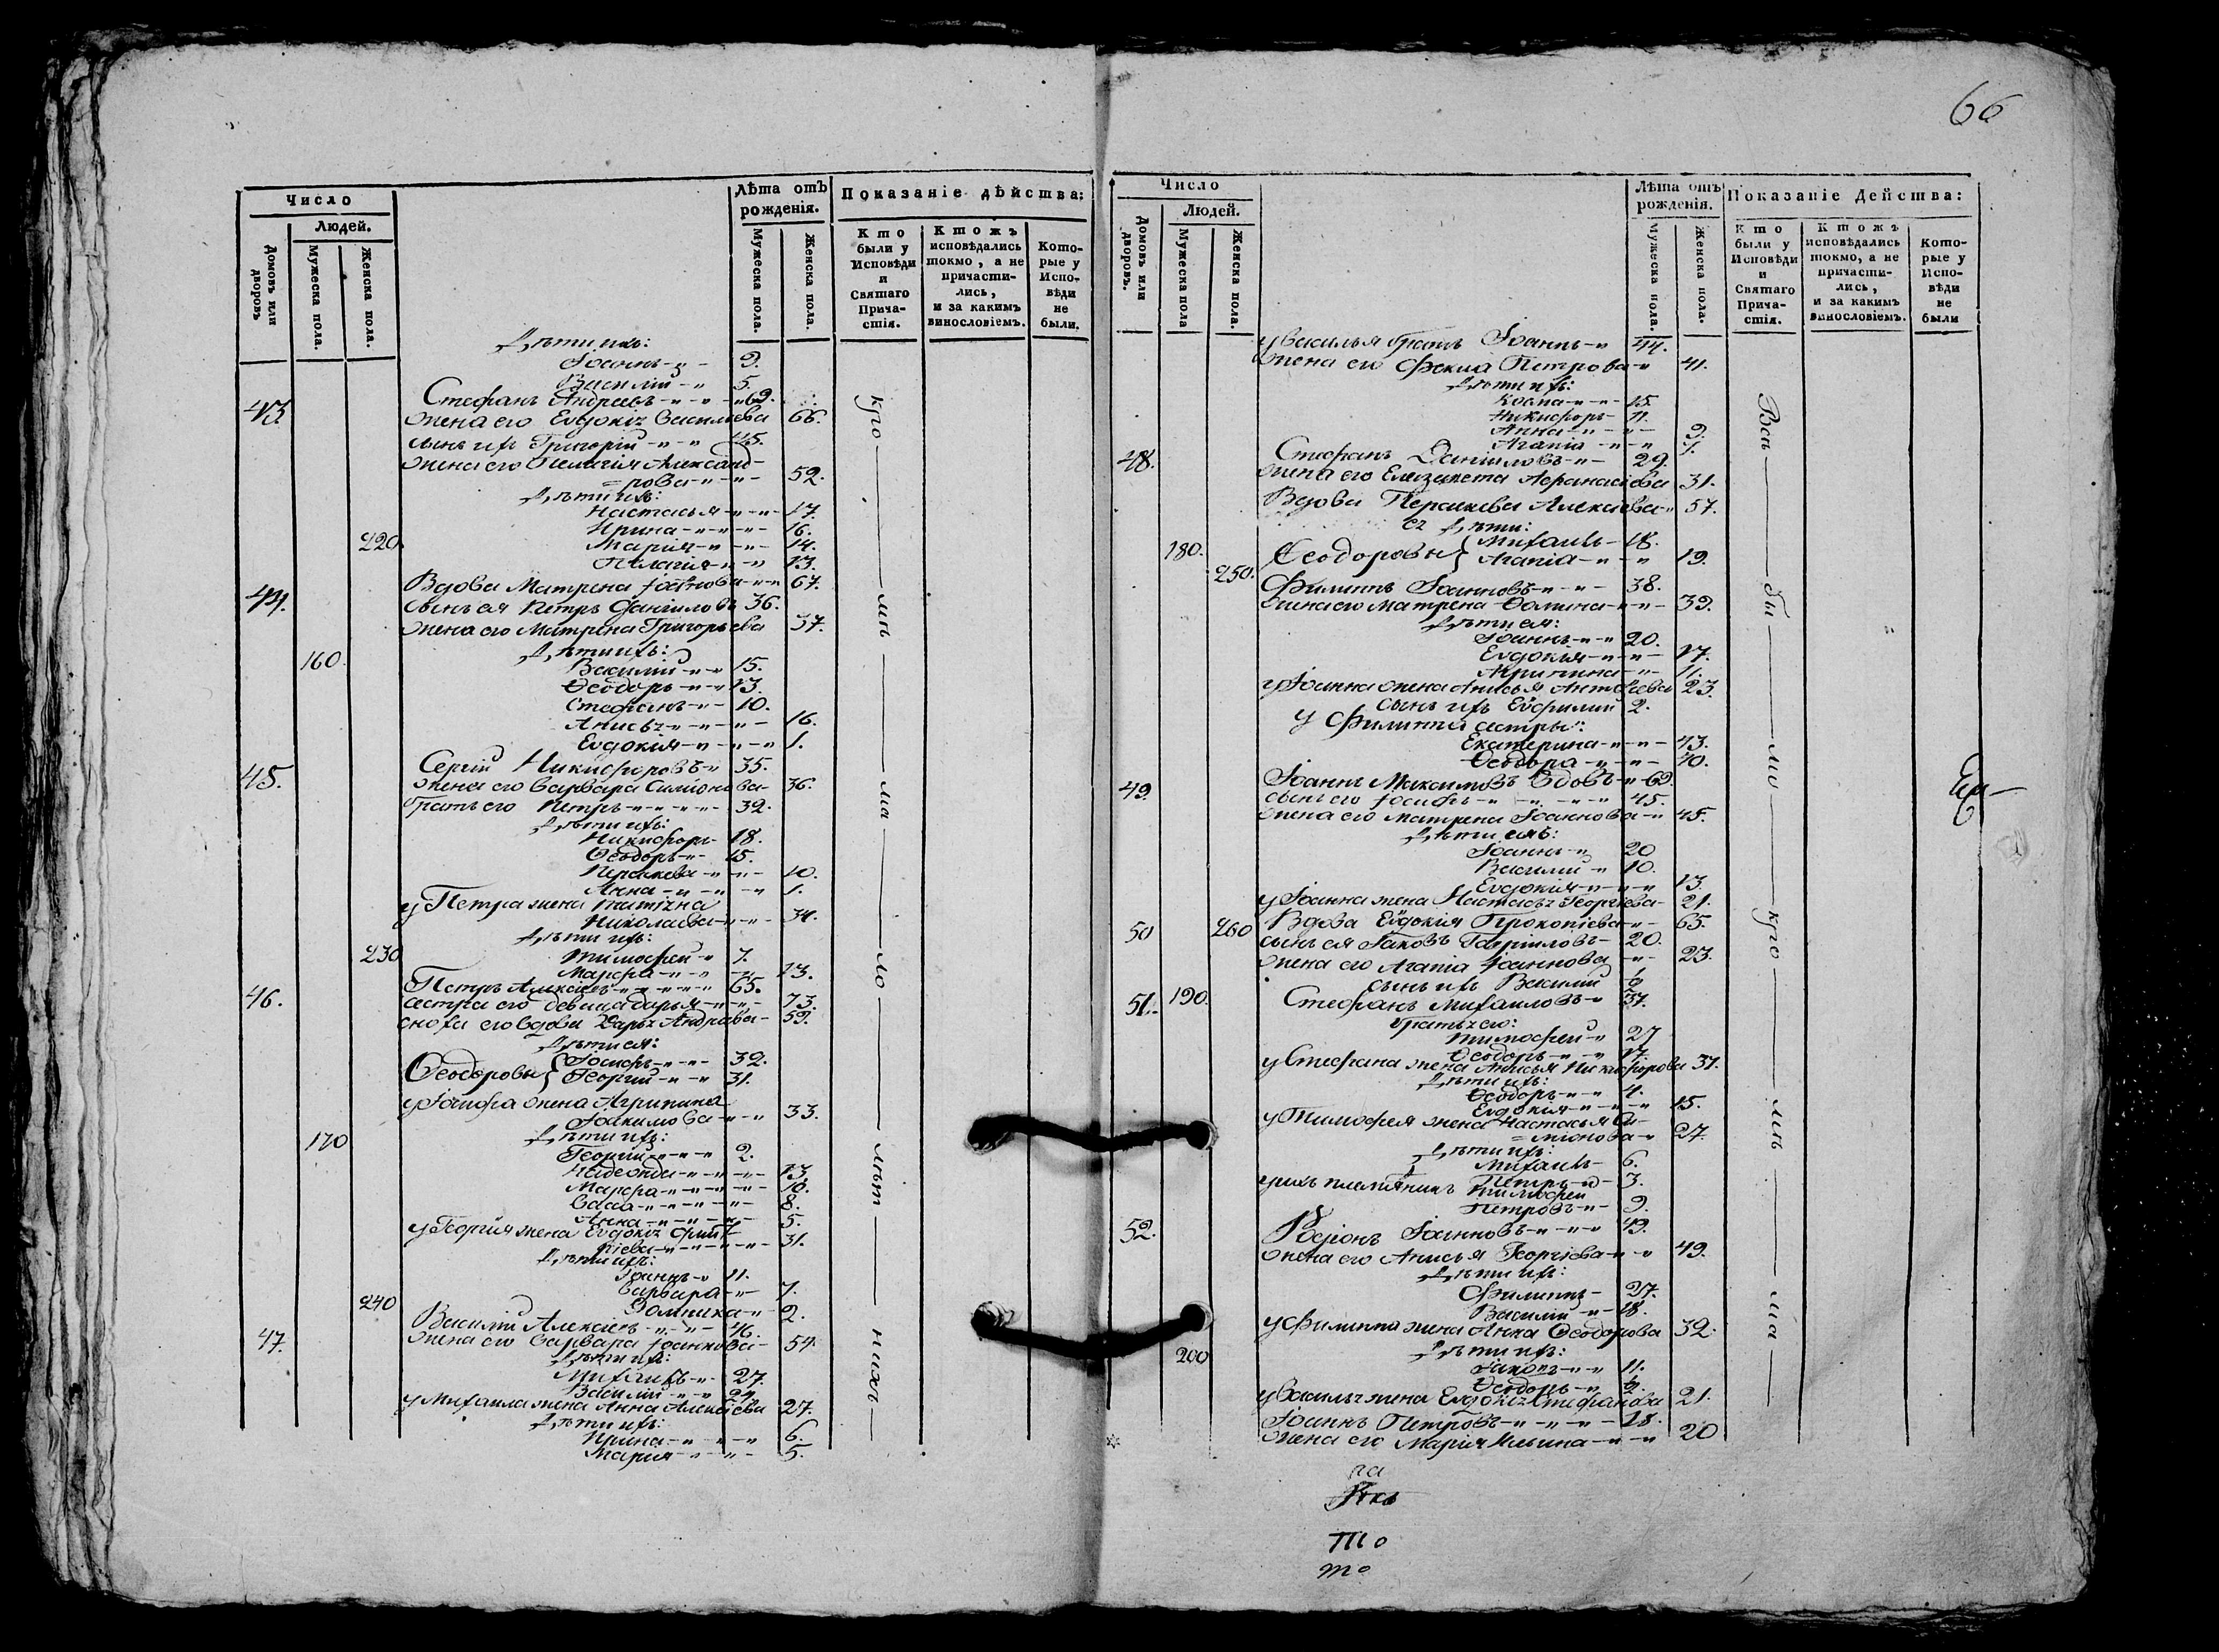 66
Число
Людей.
Домовъ или дворовъ
Мужеска пола.
Женска пола.
Лѣта отъ рожденія.
Мужеска пола.
Женска пола.
Показаніе дѣйства:
Кто были у Исповѣди и Святаго Причастія.
Ктожъ исповѣдались токмо, а не причастились, и за какимъ винословіемъ.
Которые у Исповѣди не были.
Дѣти ихъ:
Іоаннъ 9.
Василій 5.
43 Стефанъ Андреевъ 69.
жена его Евдокія Василіева 66.
сынъ ихъ Григорій 45.
жена его Пелагія Александ-
=рова 52.
Дѣти ихъ:
Настасья 17.
Ирина 16.
220 Марія 14.
Пелагія 13.
44. Вдова Матрена Іоаннова 67.
сынъ ея Петръ Даніиловъ 36.
жена его Матрена Григорьева 37.
160. Дѣти ихъ:
Василій 15.
Ѳеодоръ 13.
Стефанъ 10.
Анисья 16.
Евдокія 1.
45. Сергій Никифоровъ 35.
жена его Варвара Симіонова 36.
братъ его Петръ 32.
Дѣти ихъ:
Никифоръ 18.
Ѳеодоръ 15.
Параскева 10.
Анна 1.
у Петра жена
Николаева 34.
Дѣти ихъ:
230 Тимофей 7.
Марфа 13.
46. Петръ Алексіевъ 65.
сестра его девица Дарья 73.
сноха его вдова Дарья Андреева 59.
Дѣти ея:
Ѳеодоровы { Іосифъ 32.
Георгій 31.
у Іосифа жена Агрипина
Іакимова 33.
170 Дѣти ихъ:
Георгій 2.
Надежда 13.
Марфа 10.
Васса 8.
Анна 5.
у Георгія жена Евдокія
31.
Дѣти ихъ:
Іоаннъ 11.
Варвара 7.
240 Домника 2.
47. Василій Алексіевъ 46.
жена его Варвара Іоаннова 54.
Дѣти ихъ:
Михаилъ 27.
Василій
у Михаила жена Анна Алексіева 27.
Дѣти ихъ:
Ирина 6.
Мария 5.
Число
Людей.
Домовъ или дворовъ.
Мужеска пола
Женска пола.
Лѣта отъ рожденія.
Мужеска пола.
Женска пола.
Показаніе Дейсшва:
Кто были у Исповѣди и Святаго Причастія.
Ктожъ исповѣдались токмо, а не причастились, и за какимъ винословіемъ.
Которые у Исповѣди не были
у Василья братъ Іоаннъ 44.
жена его Фекла Петрова 41.
Дѣти ихъ:
Косма 15.
Никифоръ 11.
Анна 9.
Агапія 7.
48. Стефанъ Даніиловъ 29.
жена его Елизавета Афанасіева 31.
Вдова Параскева Алексіева 57.
ея Дѣти:
180. Ѳеодоровы { Михаилъ 18.
Агапіа 19.
250. Филиппъ Іоанновъ 38.
жена его Матрена Фомина 39.
Дѣти ея:
Іоаннъ 20.
Евдокія 17.
Агрипина 11.
у Іоанна жена Анисья 23.
сынъ ихъ Евфимій 2.
у Филиппа сестры:
Екатерина 43.
Ѳеодора 40.
49. Іоаннъ Максимовъ вдовъ 69.
сынъ его Іосифъ 45.
жена его Матрена Іоаннова 45.
Дѣти ихъ:
Іоаннъ 20
Василій 10.
Евдокія 13.
у Іоанна жена Настасья Георгіева 21.
50 260 Вдова Евдокія Прокопіева 65.
сынъ ея Іаковъ Гавріиловъ 20.
жена его Агапіа Іоаннова 23.
сынъ ихъ Василій
51. 190. Стефанъ Михаиловъ 37.
Братья его:
Тимофей 27
Ѳеодоръ 17.
у Стефана жена Анисья Никифорова 37.
Дѣти ихъ:
Ѳеодоръ 4.
Евдокія 15.
у Тимофея жена Настасья Си-
=міонова 27.
Дѣти ихъ:
Михаилъ 6.
Петръ 3.
у нихъ племянникъ Тимофей
Петровъ 9.
52. Родіонъ Іоанновъ 49.
жена его Анисья Георгіева 49.
Дѣти ихъ:
Филиппъ 27.
Василій 18.
у Филиппа жена Анна Ѳеодорова 32.
200 Дѣти ихъ:
Іаковъ 11.
Ѳеодоръ
у Василья жена Евдокія Стефанова 21.
Іоаннъ Петровъ 18.
жена его Марія Ильина 20
на
то
то